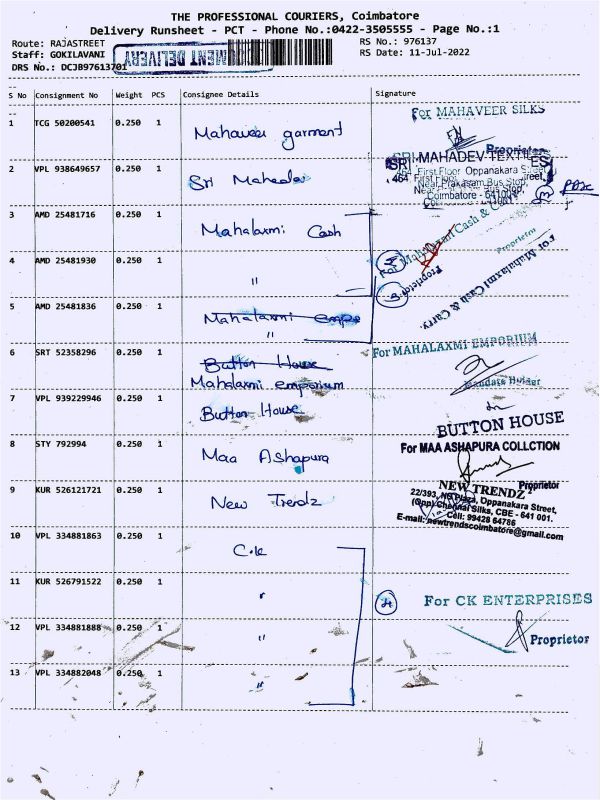 THE PROFESSIONAL COURIERS, Coimbatore
Delivery Runsheet - PCT - Phone No.:0422-3505555 - Page No.:1
Route: RAJASTREET
RS No.: 976137
Staff: GOKILAVANI
RS Date: 11-Jul-2022
DRS No.: DCJB97613701
MENT DELIVERY
S No Consignment No Weight PCS Consignee Details Signature
1 TCG 50200541 0.250 1 Mahaveer garment
For MAHAVEER SILKS
Proprietor
2 VPL 938649657 0.250 1 Sri
SRI MAHADEV TEXTILES
464 First Floor Oppanakara Street
Near Prakasam Bus Stop,
Coimbatore - 641001
3 AMD 25481716 0.250 1 Mahalaxmi Cash
For Mahalaxmi Cash & Carry
Proprietor
4 AMD 25481930 0.250 1 "
For Mahalaxmi Cash & Carry
Proprietor
5 AMD 25481836 0.250 1 Mahalaxmi Empo
6 SRT 52358296 0.250 1 Button House
Mahalaxmi emporium
For MAHALAXMI EMPORIUM
Mandate Holder
7 VPL 939229946 0.250 1 Button House
BUTTON HOUSE
8 STY 792994 0.250 1 Maa Ashapura
For MAA ASHAPURA COLLCTION
Proprietor
9 KUR 526121721 0.250 1 New Trendz
NEW TRENDZ
22/393, NG Plaza, Oppanakara Street,
(Opp) Chennai Silks, CBE - 641 001.
Cell: 99428 64786
E-mail: newtrendscoimbatore@gmail.com
10 VPL 334881863 0.250 1 C.K
11 KUR 526791522 0.250 1 "
4
For CK ENTERPRISES
12 VPL 334881888 0.250 1 "
Proprietor
13 VPL 334882048 0.250 1 "